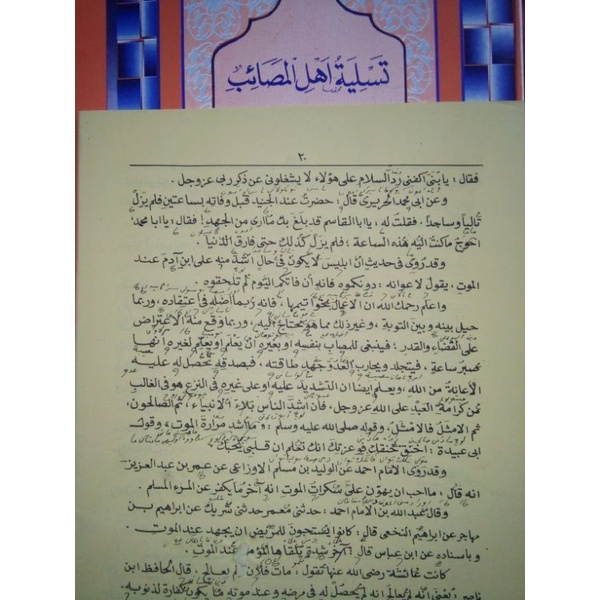 تسلية أهل المصائب
٢٠
فقال : يا بنى اكفنى رد السلام على هؤلاء لا يشغلونى عن ذكر ربى عز وجل .
وعن ابى محمد الحريرى قال : حضرت عند الجنيد قبل وفاته بساعتين فلم يزل
تاليا وساجدا . فقلت له ، يا ابا القاسم قد بلغ بك ما ارى من الجهد ! فقال : يا ابا محمد .
احوج ما كنت اليه هذه الساعة ؛ فلم يزل كذلك حتى فارق الدنيا .
وقد روى فى حديث ان ابليس لا يكون فى حال اشد منه على ابن آدم عند
الموت ، يقول لاعوانه : دونكموه فانه ان فاتكم اليوم لم تلحقوه .
واعلم رحمك الله ان الاعمال بخواتيمها ، فانه ربما اضله فى اعتقاده ، وربما
حيل بينه وبين التوبة ، وغير ذلك مما هو محتاج اليه ، وربما وقع منه الاعتراض
على القضاء والقدر ؛ فينبغى للمصاب بنفسه او بغيره ان يعلم او يعلم لغيره انها
صبر ساعة ، فيتجلد ويحارب العدو جهد طاقته ، فبصدقه يحصل له عليه
الاعانة من الله ، ويعلم ايضا ان التشديد عليه او على غيره فى النزع هو فى الغالب
من كرامة العبد على الله عز وجل ، فان اشد الناس بلاء الانبياء ، ثم الصالحون ،
ثم الامثل فالامثل ، وقوله صلى الله عليه وسلم : ما اشد مرارة الموت ، وقول
ابى عبيدة : اخنق خنقك فوعزتك انك تعلم ان قلبى يحبك
وقد روى الامام احمد عن الوليد بن مسلم الاوزاعى عن عمر بن عبد العزيز
انه قال : ما احب ان يهون على سكرات الموت انه آخر ما يكفر عن المرء المسلم .
وقال عبد الله بن الامام احمد : حدثنى معمر حدثنى شريك عن ابراهيم بن
مهاجر عن ابراهيم النخعى قال : كانوا يستحبون للمريض ان يجهد عند الموت .
وباسناده عن ابن عباس قال آخر شدة يلقاها المؤمن عند الموت .
كانت عائشة رضى الله عنها تقول : مات فلان لم يعالج . قال الحافظ ابن
ناصر : يعنى انه لم يعالج انه لم يحصل له فى مرضه وعند موته ما يكون كفارة لذنوبه .